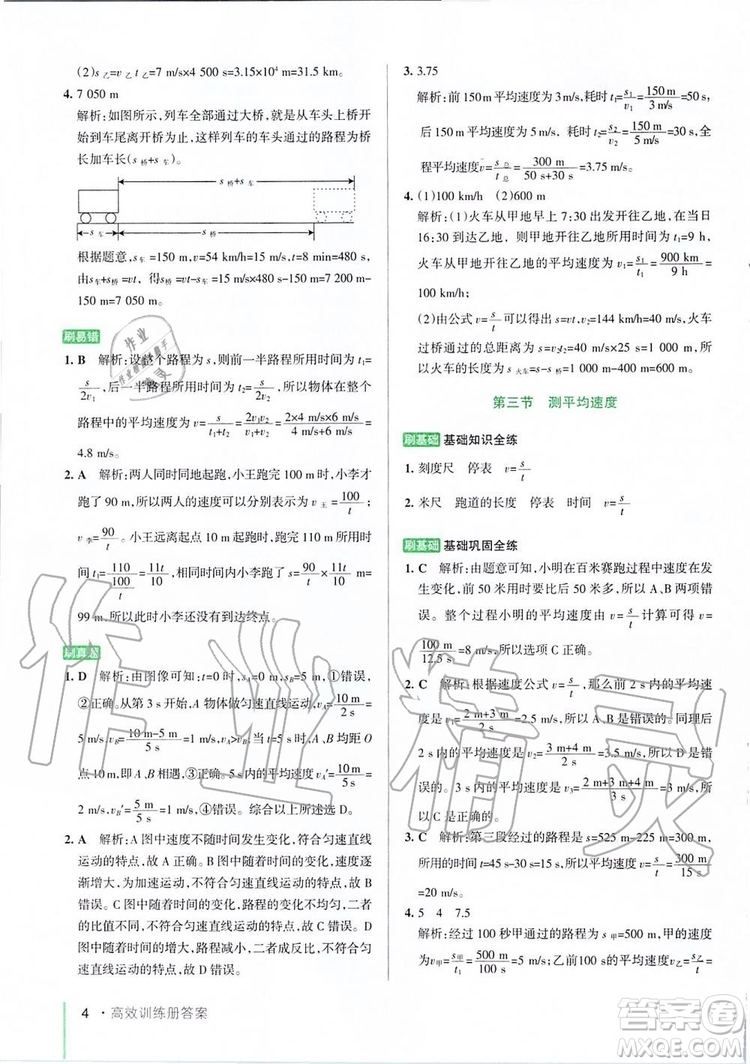 (2)s乙=v乙t乙=7 m/s×4 500 s=3.15×10⁴ m=31.5 km
4. 7 050 m
解析:如图所示,列车全部通过大桥,就是从车头上桥开始
到车尾离开桥为止,这样列车的车头通过的路程为桥
长加车长(s桥+s车)
s桥+s车
s车 s桥
根据题意,s车=150 m,v=54 km/h=15 m/s,t=8 min=480 s,
由s车+s桥=vt得s桥=vt-s车=15 m/s×480 s-150 m=7 200 m-
150 m=7 050 m
刷易错
1. B 解析:设整个路程为s,则前一半路程所用时间t₁=
s/2v₁,后一半路程所用时间t₂=s/2v₂,所以物体在整个
路程中的平均速度v=s/(t₁+t₂)=2v₁v₂/(v₁+v₂)=(2×4 m/s×6 m/s)/(4 m/s+6 m/s)=
4.8 m/s。
2. A 解析:两人同时同地起跑,小王跑100 m时小李才
跑了90 m,所以两人的速度可以分别表示为v王=100/t、
v李=90/t。小王远离起点10 m起跑,跑到终点所用时
间t₁=110/(100/t)=110/100 t,此时小李通过的路程s=90/t×110/100 t=
99 m,故此时小李还没有到达终点。
刷真题
1. D 解析:由图像可知:t=0时,sA=0 m,sB=5 m,①错误,
②正确。从第3 s开始,A、B物体做匀速直线运动,vA=10 m/2 s=
5 m/s,vB=(10 m-5 m)/5 s=1 m/s,vA>vB;当t=5 s时,A、B均距O
点10 m,即A、B相遇,③正确。0~5 s内,vA′=10 m/5 s=
2 m/s,vB′=5 m/5 s=1 m/s,④错误。综合以上所述,故选D。
2. A 解析:A图中速度不随时间发生变化,符合匀速直线
运动的特点,故A正确。B图中随着时间的增大,速度逐
渐增大,为加速运动,不符合匀速直线运动的特点,故B
错误。C图中随着时间的变化,路程没有改变,即二者
的比值不同,不符合匀速直线运动的特点,故C错误。D
图中随着时间的增大,路程减小,二者成反比,不符合匀
速直线运动的特点,故D错误。
4 · 高效训练册答案
3. 3.75
解析:前150 m平均速度为3 m/s,耗时t₁=s₁/v₁=150 m/3 m/s=50 s,
后150 m平均速度为5 m/s,耗时t₂=s₂/v₂=150 m/5 m/s=30 s,全
程平均速度为v=s总/t总=300 m/(50 s+30 s)=3.75 m/s。
4. (1)100 km/h (2)600 m
解析:(1)火车从甲地早上7:30出发开往乙地,在当日
16:30到达乙地,所以火车从甲地开往乙地的时间t₁=9 h,
火车从甲地开往乙地的平均速度为v₁=s₁/t₁=900 km/9 h=
100 km/h。
(2)由公式v=s/t可以得出s=vt,v=144 km/h=40 m/s,火车
过桥通过的总距离为s=vt=40 m/s×40 s=1 600 m,
所以火车的长度为s火车=s-s桥=1 600 m-1 000 m=600 m。
第三节 测平均速度
刷基础 基础知识全练
1. 刻度尺 停表 v=s/t
2. 米尺 跑道的长度 停表 时间 v=s/t
刷基础 基础巩固全练
1. C 解析:由题意可知,小明在百米赛跑过程中速度在
发生变化,前50米用时要比后50米多,所以A、B、D均
错误。整个过程小明的平均速度由v=s/t计算可得v=
s/t=100 m/12.5 s=8 m/s,所以C正确。
2. C 解析:根据速度公式v=s/t,那么前2 s内的平均速
度v₁=(2 m+3 m)/2 s=2.5 m/s,所以A、B是错误的。同理后
2 s内的平均速度v₂=(3 m+4 m)/2 s=3.5 m/s,所以D是错误
的。3 s内的平均速度v₃=(2 m+3 m+4 m)/3 s=3 m/s,所以应
选C。
3. C 解析:第三段经过的路程是s=525 m-225 m=300 m,
所用的时间t=45 s-30 s=15 s,所以平均速度v=s/t=300 m/15 s
=20 m/s。
4. 5 4 7.5
解析:经过100秒甲通过的路程为500 m,甲的速度为
v甲=s甲/t₁=500 m/100 s=5 m/s,经过100秒乙通过的路程为
作业精灵
答案圈
MXQE.COM